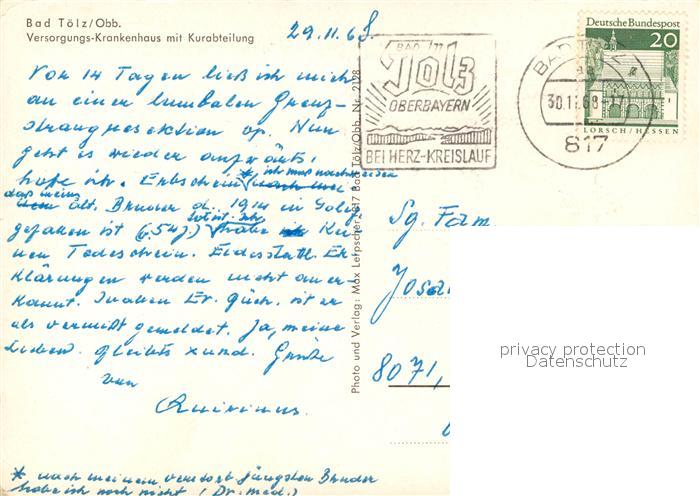 Bad Tölz/Obb.
Versorgungs-Krankenhaus mit Kurabteilung
29.11.68.
Vor 14 Tagen ließ ich mich
an einer lumbalen Grenz-
strangresektion op. Nun
geht es wieder aufwärts,
hoffe ich. Erbschein
* ich muß nachweisen
daß meine
ält. Bruder d. 1914 in
gefallen ist (54J) tot ist. Ich
habe Kei-
nen Todeschein. Eidesstattl. Er-
klärungen werden nicht aner-
kannt. In allen Er. ist er
als vermißt gemeldet. Ja, meine
Lieben. Bleibts xund. Grüße
von
Quirinus.
* nach meinem verstorb. jüngsten Bruder
habe ich noch nicht (Dr. med.)
Photo und Verlag: Max Lefpscher, 817 Bad Tölz/Obb. Nr. 2128
BAD
Tölz
OBERBAYERN
BEI HERZ-KREISLAUF
BAD TÖLZ
30.11.68-17
817
Deutsche Bundespost
20
LORSCH/HESSEN
Sg. Fam
Josa
8071,
privacy protection
Datenschutz